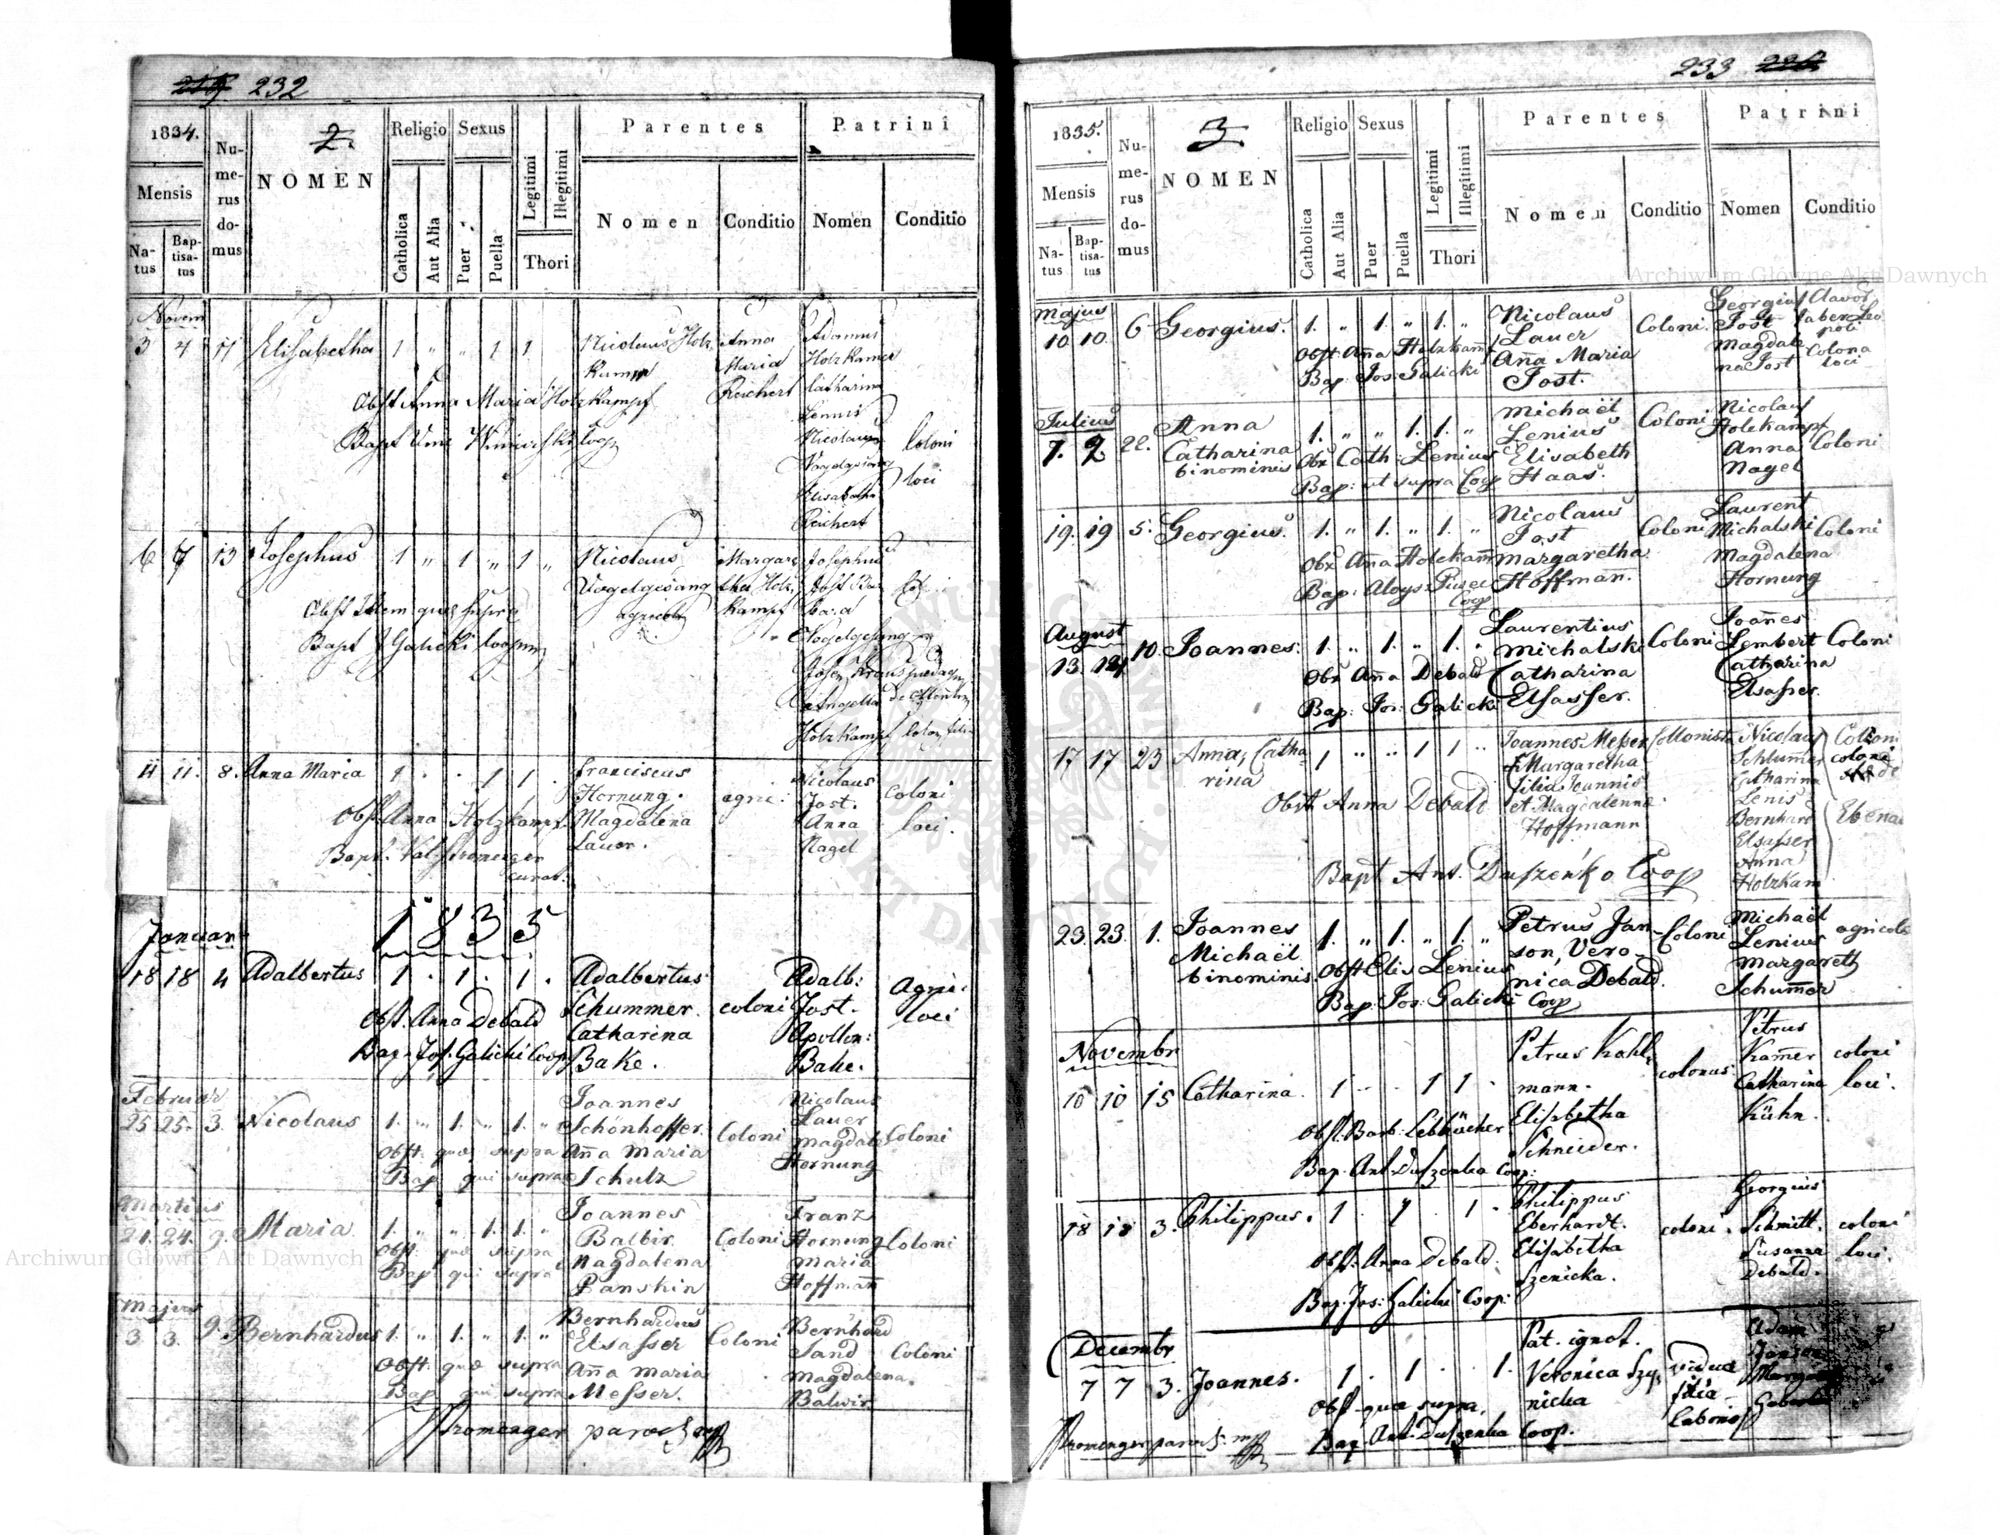 232
1834.
2.
Religio Sexus
Legitimi
Illegitimi
Parentes
Patrini
Mensis
Numerus domus
NOMEN
Na-
tus
Bap-
tisa-
tus
Catholica
Aut Alia
Puer
Puella
Thori
Nomen
Conditio
Nomen
Conditio
Novem
3 4 11 Elisabetha 1 " " 1 1
Nicolaus Holz
kampf
Anna
Maria
Reichert
Adamus
Holzkamer
Catharina
Lennis
Nicolaus
Vogelgesang
Elisabetha
Reichert
Coloni
loci
Obst Anna Maria Holzkampf
6 7 13 Josephus 1 " 1 " 1 "
Nicolaus
Vogelgesang
agricola
Margare
tha Holz
kampf
Josephus
Vogelgesang
Holzkampf
Obst Idem quae supra
Bapt J Galicki Coop
11 11. 8. Anna Maria 1 . . 1 1 .
Franciscus
Hornung.
Magdalena
Lauer.
agric:
Nicolaus
Jost.
Anna
Nagel
Coloni
loci.
Obst. Anna Holzkampf
Bapt. Val. Stromenger
curat.
Januar
1835
18 18 4 Adalbertus 1 . 1 . 1 .
Adalbertus
Schummer.
Catharina
Bake.
coloni
Adalb:
Jost.
Apollon:
Bake.
Agric:
loci
Obst. Anna Debald
Bap. Jos. Galicki Coop
Februar
25 25. 3. Nicolaus 1. " 1. " 1. "
Joannes
Schönhoffer.
Aña Maria
Schulz
Coloni
Nicolaus
Lauer
Magdale
Hornung
Coloni
Obst. quae supra
Bap qui supra
Martius
21. 24. 9. Maria 1. " " 1. 1. "
Joannes
Balbir
Magdalena
Panskin
Coloni
Franz
Hornung
Maria
Hoffmañ
Coloni
Obst. quae supra
Bap qui supra
Majus
3 3. 9. Bernhardus 1. " 1. " 1. "
Bernhardus
Elsasser
Aña Maria
Messer.
Coloni
Bernhard
Sand
Magdalena.
Balwir
Coloni
Obst. quae supra
Bap. qui supra
Stromenger paroch mp
233
1835.
3
Religio Sexus
Legitimi
Illegitimi
Parentes
Patrini
Mensis
Numerus domus
NOMEN
Na-
tus
Bap-
tisa-
tus
Catholica
Aut Alia
Puer
Puella
Thori
Nomen
Conditio
Nomen
Conditio
Majus
10. 10. 6 Georgius. 1. " 1. " 1. "
Nicolaus
Lauer
Aña Maria
Jost.
Coloni.
Georgius
Jost
Magdale
na Jost
Clavor
faber Leo
poli
Colona
loci
Obst. Aña Holzkamf
Bap: Jos: Galicki
Julius
7. 7. 22. Anna
Catharina
binominis
1. " " 1. 1. "
Michaël
Lenius
Elisabeth
Haas.
Coloni
Nicolaus
Holzkampf
Anna
Nagel
Coloni
Obx Cath: Lenius
Bap: ut supra Coop
19. 19 5. Georgius. 1. " 1. " 1. "
Nicolaus
Jost
Margaretha
Hoffmañ.
Coloni
Laurent
Michalski
Magdalena
Hornung
Coloni
Obx Aña Holzkamf
Bap: Aloys Pusec
Coop
August
13. 14. 10. Joannes. 1. " 1. " 1. "
Laurentius
Michalski
Catharina
Elsasser.
Coloni
Joañes
Lembert
Catharina
Elsasser.
Coloni
Obx Aña Debald
Bap: Jos: Galicki
17 17 23 Anna, Catha
rina
1 " " 1 1 "
Joannes Messer
Margaretha
filia Joannis
et Magdalenna
Hoffmann
Collonista
Nicolaus
Schlumer
Catharina
Lenis
Bernhard
Elsasser
Anna
Holzkam
Obst. Anna Debald
Bapt Ant. Duszeńko Coop
23. 23. 1. Joannes
Michaël
binominis.
1. " 1. " 1. "
Petrus Jan-
son, Vero-
nica Debald.
Coloni
Michaël
Lenius
Margareth
Schum̃er
agricola
Obst Elis Lenius
Bap. Jos: Galicki Coop
Novembr
10 10 15 Catharina. 1 . . 1 1 .
Petrus Kahl
mann.
Elisabetha
Schneider.
colonus
Petrus
Kam̃er
Catharina
Kühn.
coloni
loci.
Obst. Barb: Lebkücher
Bap. Ant. Duszenka Coop:
18 18 3. Philippus. 1 . 1 . 1 .
Philippus
Eberhardt.
Elisabetha
Szenicka.
coloni.
Georgius
Schmitt.
Susanna
Debald.
coloni
loci.
Obst. Anna Debald.
Bap. Jos: Galicki Coop:
Decembr
7 7 3. Joannes. 1 . 1 . . 1.
Pat. ignot.
Veronica Sze
nicka
vidua
filia
Adam
Janson
Obst. quae supra.
Bap. Ant. Duszenka Coop.
Stromenger paroch. mp
Archiwum Główne Akt Dawnych
Archiwum Główne Akt Dawnych